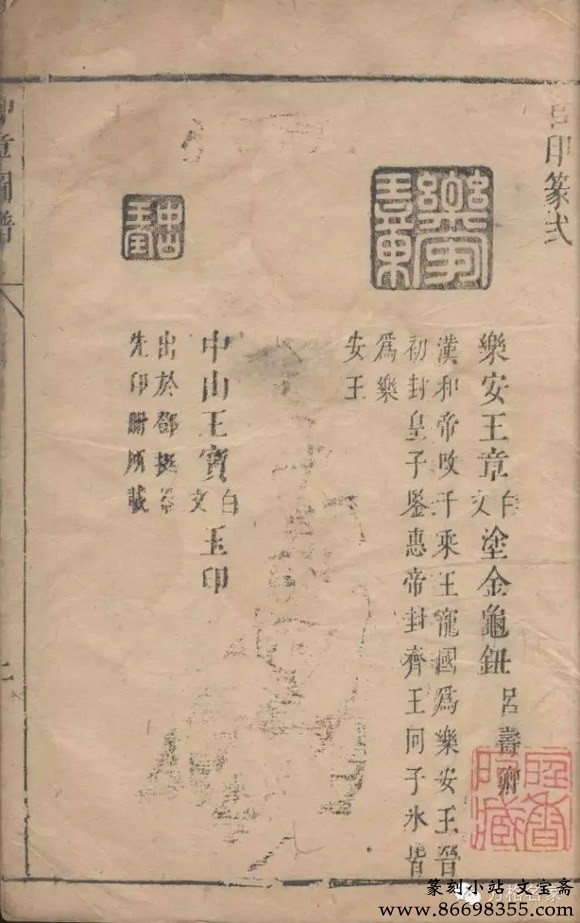 官印篆式
樂安王章 白文 塗金龜鈕 呂壽卿
漢和帝改千乘王寵國為樂安王晉
初封皇子鑒惠帝封齊王冏子冰皆
為樂
安王
中山王寶 白文 玉印
出於鄧
先印所載
印章圖譜
篆刻小站 文宝斋
www.86698355.com